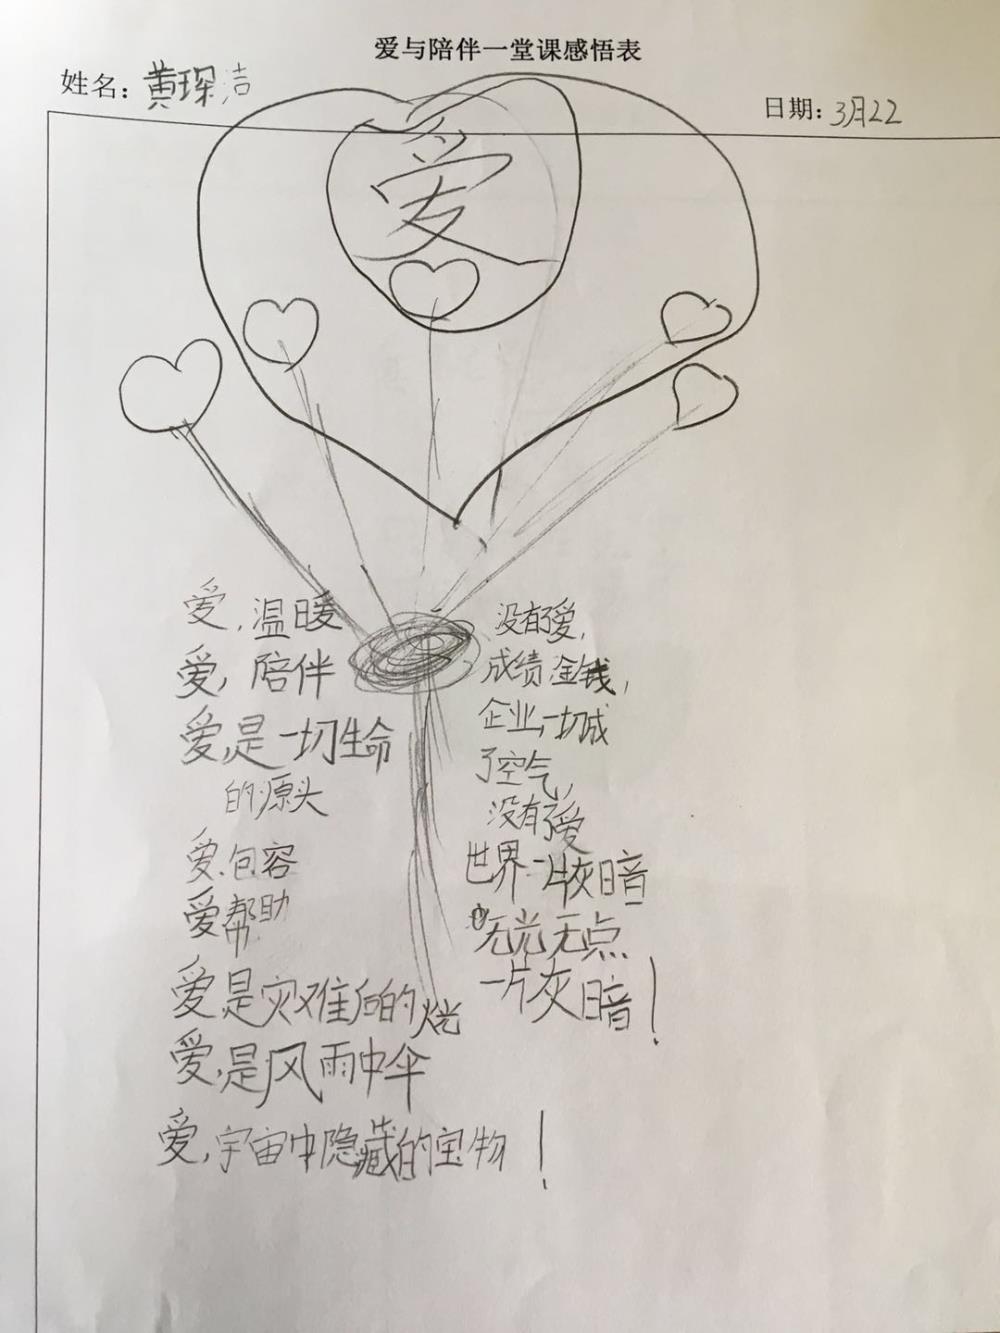 爱与陪伴一堂课感悟表
姓名：黄琛洁
日期：3月22
爱
爱，温暖
爱，陪伴
爱，是一切生命
的源头
爱、包容
爱帮助
爱是灾难后的火光
爱，是风雨中伞
爱，宇宙中隐藏的宝物！
没有了爱，
成绩，金钱，
企业，一切成
了空气，
没有了爱
世界一片灰暗
无光无点
一片灰暗！